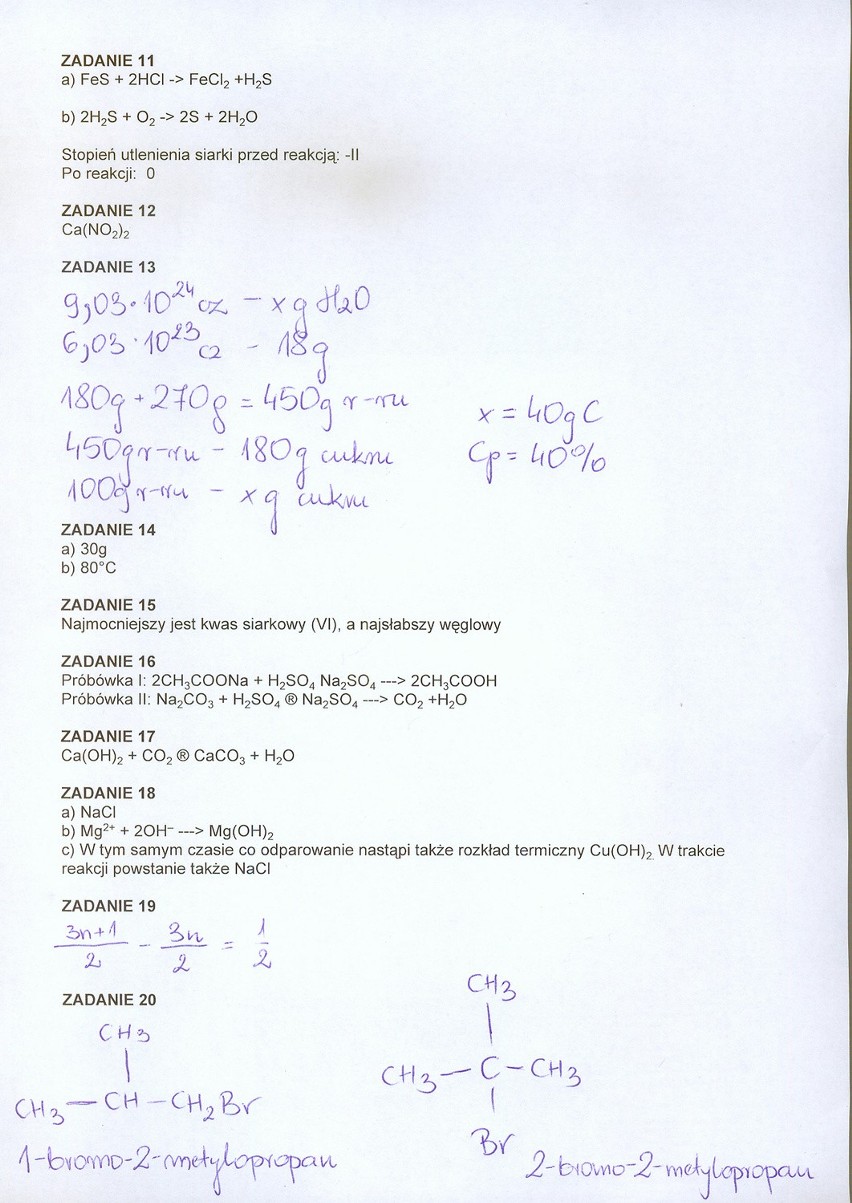 ZADANIE 11
a) FeS + 2HCl -> FeCl₂ +H₂S
b) 2H₂S + O₂ -> 2S + 2H₂O
Stopień utlenienia siarki przed reakcją: -II
Po reakcji: 0
ZADANIE 12
Ca(NO₂)₂
ZADANIE 13
9,03·10²⁴ cz – x g H₂O
6,03·10²³ cz - 18g
180g + 270g = 450g r-ru
450g r-ru – 180g cukru
100g r-ru – x g cukru
x = 40g C
Cp = 40%
ZADANIE 14
a) 30g
b) 80°C
ZADANIE 15
Najmocniejszy jest kwas siarkowy (VI), a najsłabszy węglowy
ZADANIE 16
Próbówka I: 2CH₃COONa + H₂SO₄ Na₂SO₄ ---> 2CH₃COOH
Próbówka II: Na₂CO₃ + H₂SO₄ ® Na₂SO₄ ---> CO₂ +H₂O
ZADANIE 17
Ca(OH)₂ + CO₂ ® CaCO₃ + H₂O
ZADANIE 18
a) NaCl
b) Mg²⁺ + 2OH⁻ ---> Mg(OH)₂
c) W tym samym czasie co odparowanie nastąpi także rozkład termiczny Cu(OH)₂. W trakcie
reakcji powstanie także NaCl
ZADANIE 19
3n+1 3n 1
— - — = —
2 2 2
ZADANIE 20
CH₃
|
CH₃ — CH — CH₂Br
1-bromo-2-metylopropan
CH₃
|
CH₃ — C — CH₃
|
Br
2-bromo-2-metylopropan